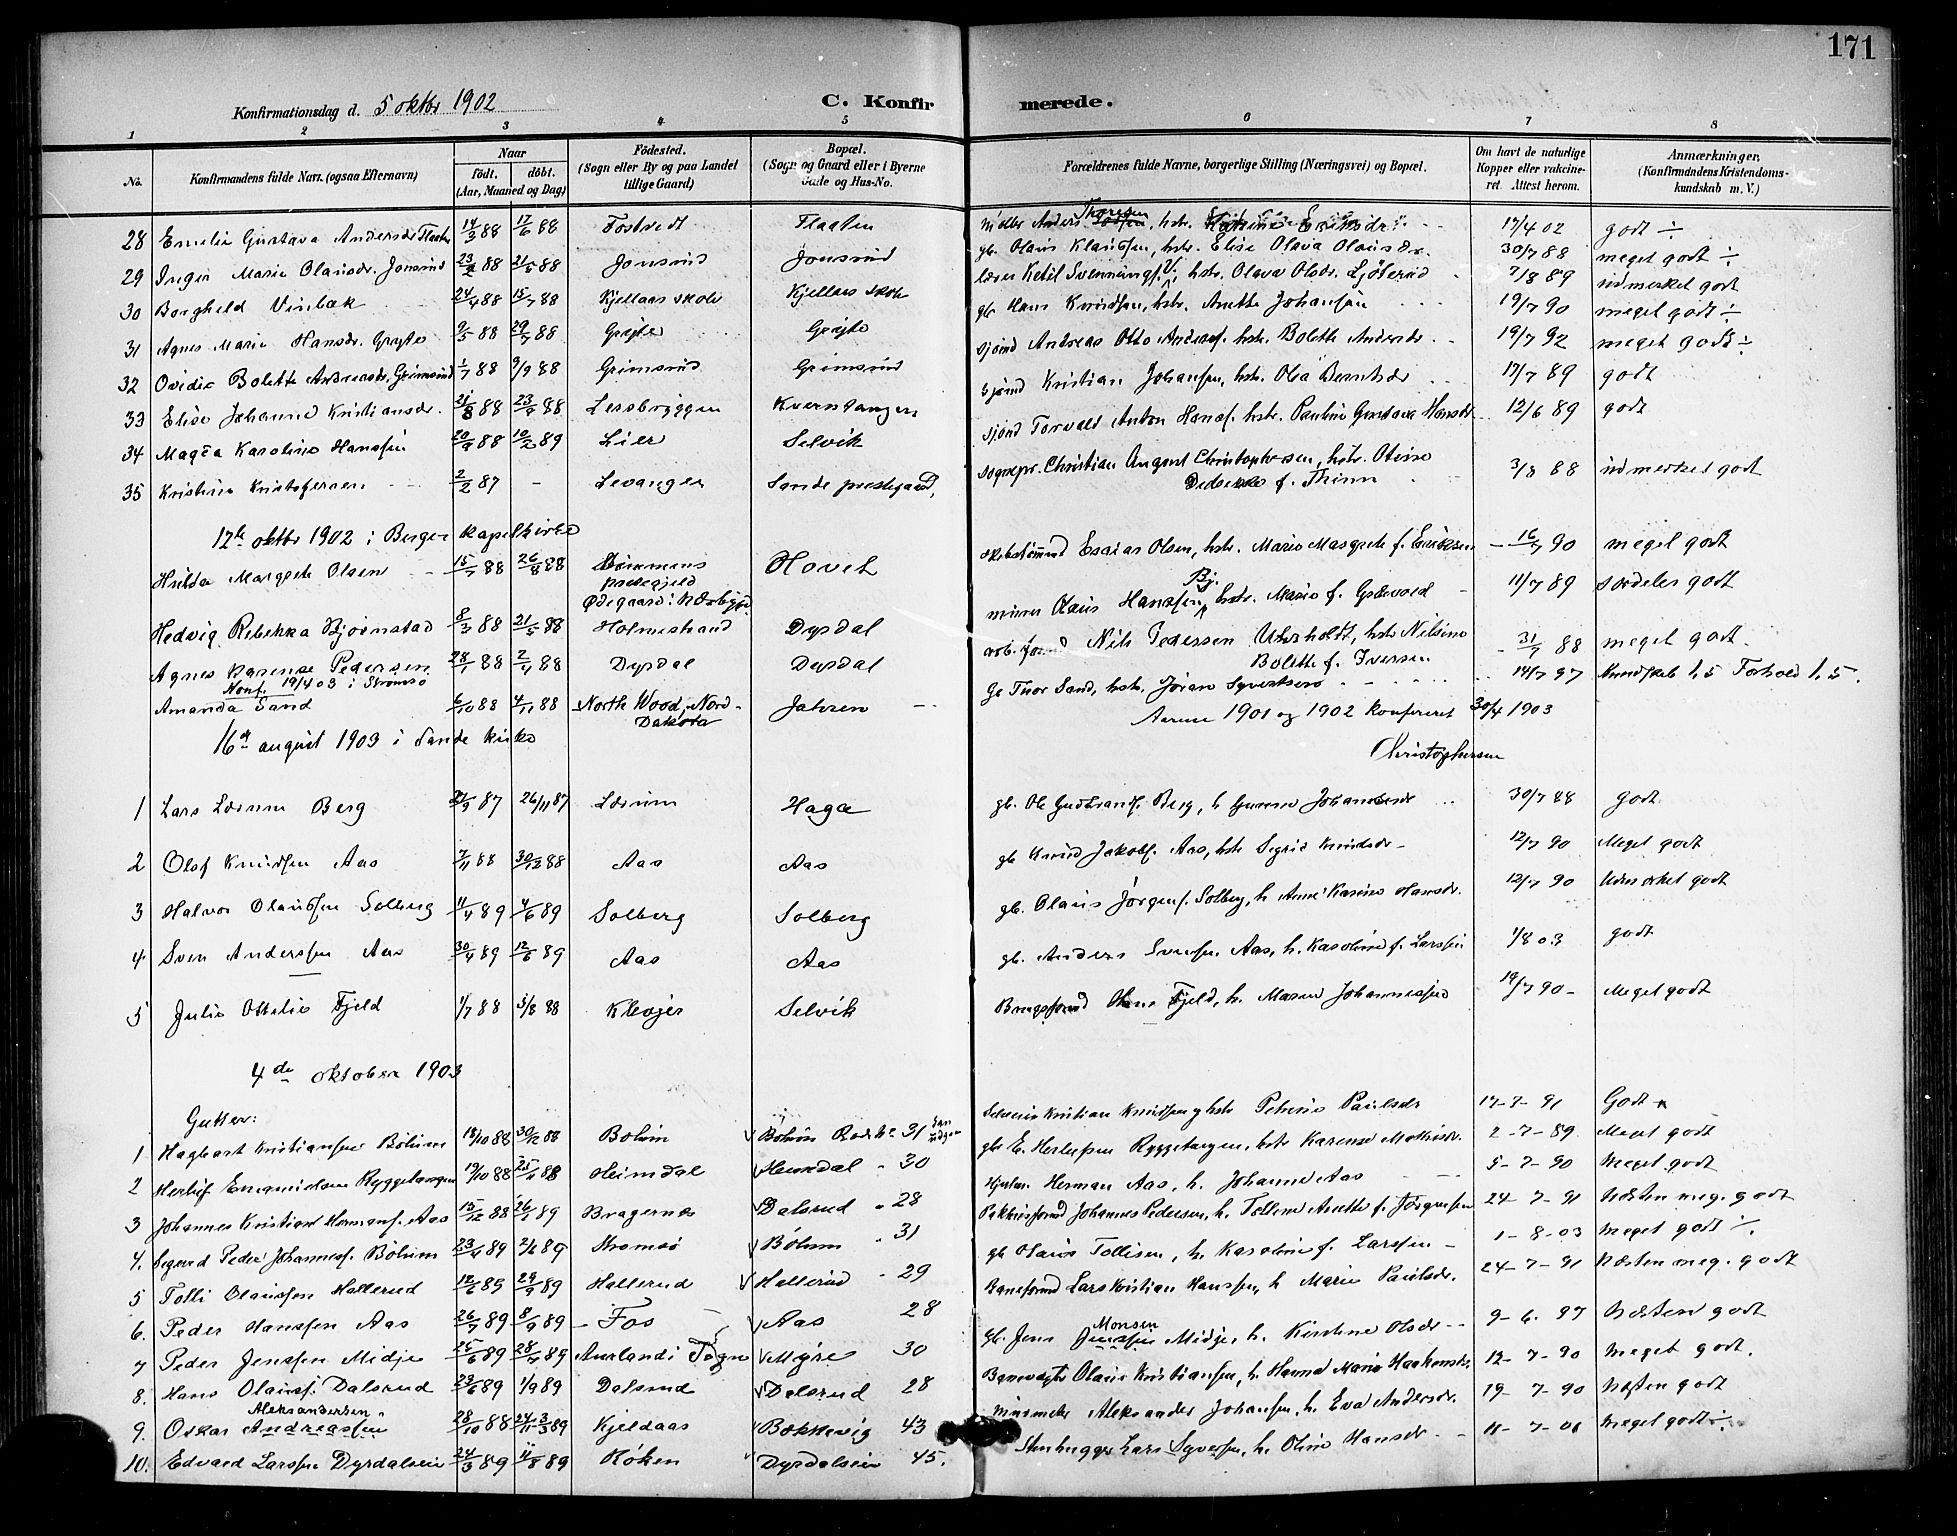 171
Konfirmationsdag d. 5 oktbr 1902
C. Konfirmerede.
1 2 3 4 5 6 7 8
No.
Konfirmandens fulde Navn (ogsaa Efternavn)
Naar
födt. döbt.
(Aar, Maaned og Dag)
Födested.
(Sogn eller By og paa Landet tillige Gaard)
Bopæl.
(Sogn og Gaard eller i Byerne Gade og Hus-No.
Forældrenes fulde Navne, borgerlige Stilling (Næringsvei) og Bopæl.
Om havt de naturlige Kopper eller vakcineret. Attest herom.
Anmærkninger,
(Konfirmandens Kristendomskundskab m. V.)
28 Emelie Gustava Andersdr Flaaten 14/3 88 17/6 88 Fostvedt Flaaten Anders Thoresen, hstr. 17/4 02 godt ÷
29 Inga Marie Olausdr. Jonsrud 23/2 88 21/5 88 Jonsrud Jonsrud gb. Olaus Klausen, hstr. Elise Olava Olausdr. 30/7 88 meget godt ÷
30 Borghild Vinbæk 24/4 88 15/7 88 Kjellaas skole Kjellaas skole lærer Ketil Svenningsf. V., hstr. Olava Olsdr. 7/8 89 udmerket godt
31 Agnes Marie Hansdr. Gryte 9/5 88 29/7 88 Gryte Gryte gb. Hans Knudsen, hstr. Anette Johansen 19/7 90 meget godt ÷
32 Ovidie Bolette Andreasdr. Grimsrud 1/7 88 9/9 88 Grimsrud Grimsrud sjömd Andreas Otto Andersf. hstr. Bolette Andersdr 19/7 92 meget godt ÷
33 Elise Johanne Kristiansdr. 21/8 88 23/9 88 Lersbryggen sjömd Kristian Johansen, hstr. Olea Berntsdr 17/7 89 godt
34 Magda Karoline Hanssen 20/9 88 10/2 89 Lier Selvik sjömd Torvald Anton Hansf. hstr. Pauline Gustava Hansdr 12/6 89 godt
35 Kristine Kristofersen 2/2 87 - Levanger Sande prestegaard, sognepr. Christian August Christophersen, hstr. Otine
f. Thinn 3/8 88 udmerket godt
12te oktbr 1902 i Berger kapelkirke
Hulda Margrete Olsen 15/7 88 26/8 88 Strømmens
prestegjeld Hovet Esaias Olsen, hstr. Marie Margrete f. Eriksen 16/7 90 meget godt
Ødegaard i Næsbygd
Hedvig Rebekka Bjørnstad 8/3 88 21/5 88 Holmestrand Dyrdal murer Olaus Hanssen Bj. hstr. Marie f. 11/7 89 særdeles godt
Agnes Karense Pedersen 28/1 88 2/4 88 Dyrdal Dyrdal arb. formd Nils Pedersen, hstr Nilsine
Bolette f. Iversen 31/7 88 meget godt
Konf. 19/4 03 i Strømsø
Amanda Sand 6/10 88 4/11 88 North Wood, Nord-
Dakota Jahren Thor Sand, hstr. Jøran Syvertsen 14/7 97 Kundskab 1,5 Forhold 1,5.
Aarene 1901 og 1902 konfereret 30/4 1903
Christophersen
16de august 1903 i Sande kirke
1 Lars Lærum Berg 27/9 87 26/11 87 Lærum Haga gb. Ole Gudbrandsf. Berg, h 30/7 88 godt
2 Olaf Knudsen Aas 7/11 88 30/12 88 Aas Aas gb. Knud Jakobsf. Aas, hstr Sigrid Knudsdr - 12/7 90 Meget godt
3 Halvor Olaussen Solberg 11/4 89 4/6 89 Solberg Solberg gb. Olaus Jörgensf. Solberg, h Anne Karine Hansdr. 12/7 90 Udmerket godt
4 Sven Anderssen Aas 30/4 89 12/6 89 Aas Aas gb. Anders Svensen Aas, h. Karoline f. Larssen 1/8 03 godt
5 Julie Ottilie Fjeld 1/7 88 5/8 88 Klevjer Selvik Brugsformd Fjeld, h. Maren 19/7 90 - Meget godt
4de oktober 1903
Gutter:
1 Hagbart Kristiansen Bölum 18/10 88 30/12 88 Bolum Bölum 31 Kristian Knudsen hstr Petrine Paulsdr 17-7-91 Godt
2 Herlof Emanuelsen Ryggetangen 19/10 88 25/11 88 Heimdal Heimdal " 30 gb. E. Herlufsen Ryggetangen, hstr Karense 2-7-89 Meget godt
3 Johannes Kristian Hermansf. Aas 15/12 88 26/1 89 Bragernæs Dalsrud " 28 Herman Aas, h. Johanne Aas 5-7-90 Meget godt
4. Sigurd Peder Johannesf. Bölum 23/4 89 2/6 89 Strømsö Bölum " 31 Johannes Pedersen, h. Tolline Anette f. Jörgensen 24-7-91 Næsten meg. godt
5 Tolli Olaussen Hallerud 12/6 89 29/9 89 Hallerud Hallerud " 29 gb Olaus Tollisen, h. Karoline f. Larssen - 1-8-03 Meget godt ÷.
6. Peder Hanssen Aas 26/7 89 8/9 89 Fos Aas 28 Baneformd Lars Kristian Hanssen, h Marie Paulsdr. 24-7-91 Næsten meg. godt
7 Peder Jenssen Midje 25/6 89 28/7 89 Aurland i Sogn Myre 30 gb. Jens Monsen Midje, h. Kirstine Olsdr - 9-6-97 Næsten godt
8. Hans Olausf. Dalsrud 23/6 89 1/9 89 Dalsrud Dalsrud 28 Banevogter Olaus Kristiansen, h. Hanna Marie Haakonsdr. 12-7-90 Meget godt.
9. Oskar Andreassen
Aleksandersen 28/10 88 24/11 3/3 89 Kjeldaas Bokkevig 43 Aleksander Johansen, h. Eva Andersdr. 19-7-90 Næsten godt
10. Edvard Larssen Dyrdalseie 24/3 89 11/8 89 Röken Dyrdalseie 45. Stenhugger Lars Syversen, h. Oline Hansdr - 11-7-01 Meget godt ÷